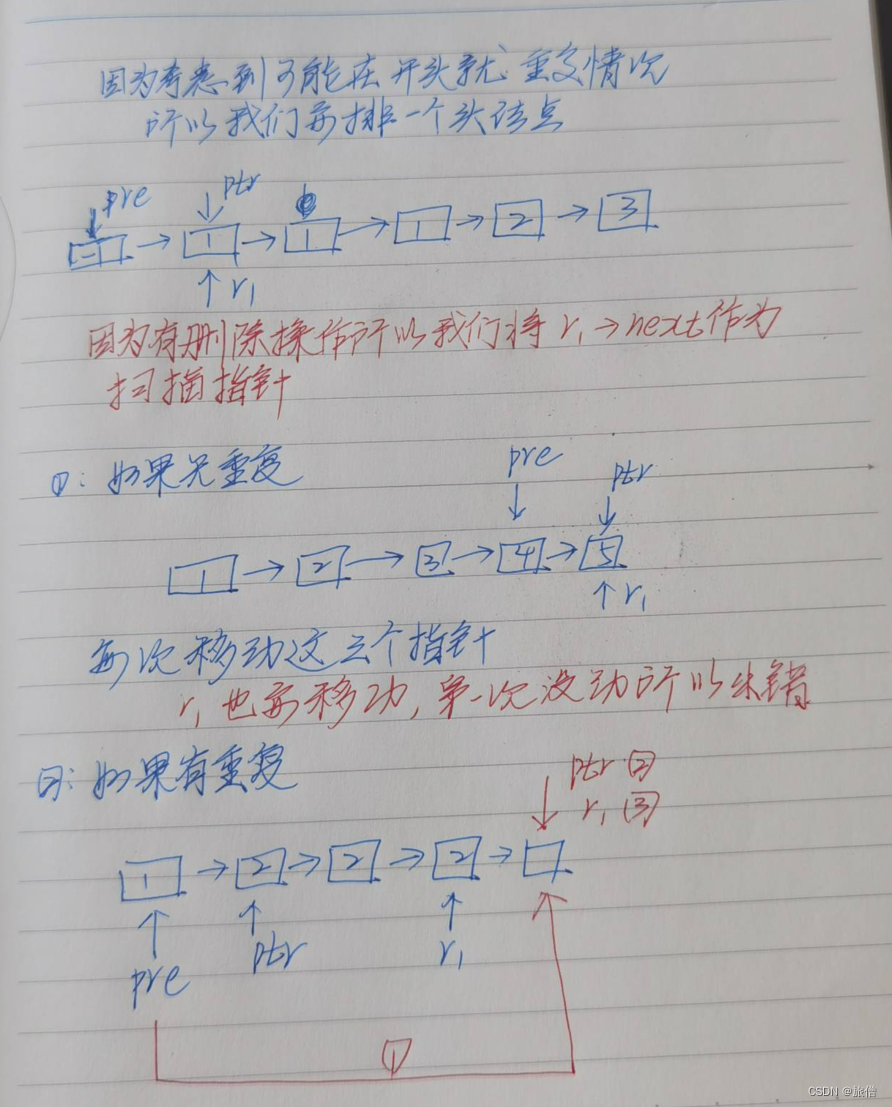 因为考虑到可能在开头就重复情况
所以我们安排一个头结点
pre ptr
-1 → 1 → 1 → 1 → 2 → 3
↑ r₁
因为有删除操作所以我们将 r₁→next作为
扫描指针
①: 如果无重复
pre
ptr
1 → 2 → 3 → 4 → 5
↑ r₁
每次移动这三个指针
r₁也要移动,第一次没动所以出错
②: 如果有重复
ptr ②
r₁ ③
1 → 2 → 2 → 2 →
pre ptr r₁
①
CSDN @旅僧